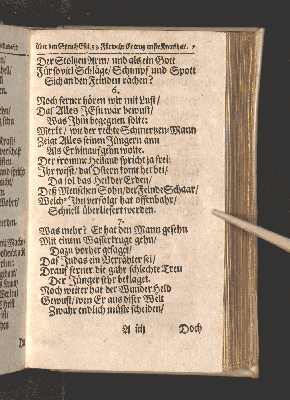 über den Spruch Esa. 53. Fürwahr Er trug unsre Kranckheit. 7
Der Stolzen Arm/ und als ein Gott
Für so viel Schläge/ Schimpf und Spott
Sich an den Feinden rächen?
6.
Noch ferner hören wir mit Lust/
Das Alles JEsu war bewust/
Was Ihm begegnen solte:
Merkt/ wie der rechte Schmertzen-Mann
Zeigt Alles seinen Jüngern ann
Als Er hinauf gehn wolte.
Der fromme Heiland spricht ja frei:
Ihr wisst/ das Ostern komt herbei/
Da sol das Heil der Erden/
Deß Menschen Sohn/ der Feinde Schaar/
Welch' Ihn verfolgt hat offenbahr/
Schnell überliefert werden.
7.
Was mehr? Er hat den Mann gesehn
Mit einem Wasserkruge gehn/
Dazu vorher gesaget/
Das Judas ein Verrähter sei/
Drauf ferner die gahr schlechte Treu
Der Jünger sehr beklaget.
Noch weiter hat der Wunder Held
Gewust/ wen Er aus diser Welt
Zwahr endlich müste scheiden/
A iiij
Doch